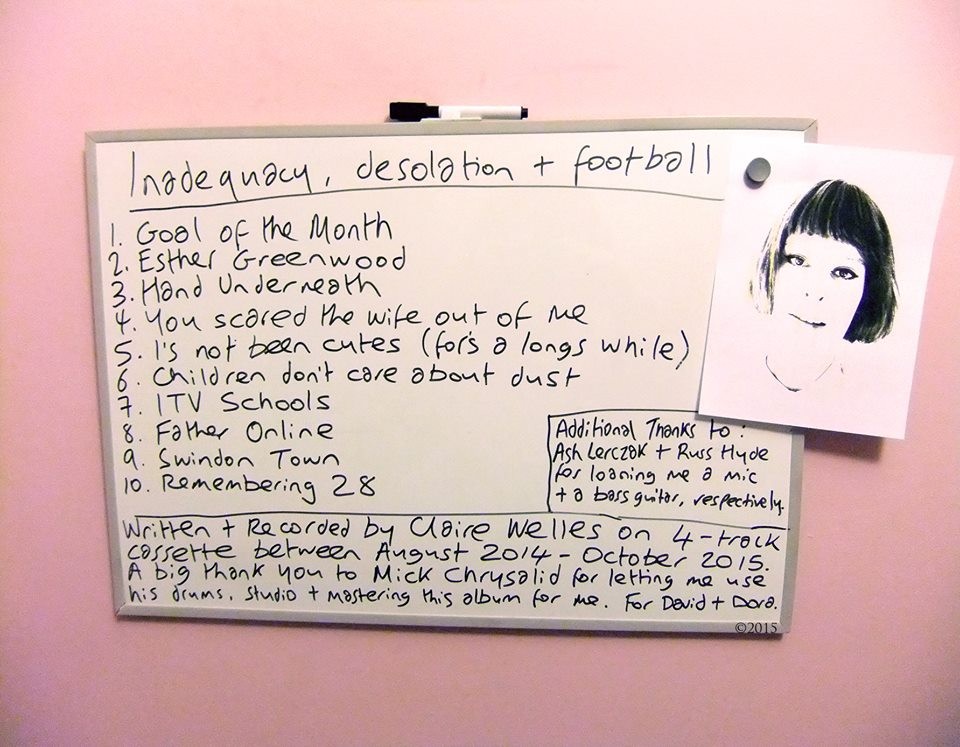 Inadequacy, desolation + football
1. Goal of the Month
2. Esther Greenwood
3. Hand Underneath
4. You scared the wife out of me
5. I's not been cutes (for's a longs while)
6. Children don't care about dust
7. ITV Schools
8. Father Online
9. Swindon Town
10. Remembering 28
Additional Thanks to:
Ash Lerczak + Russ Hyde
for loaning me a mic
+ a bass guitar, respectively.
Written + Recorded by Claire Welles on 4-track
cassette between August 2014 - October 2015.
A big thank you to Mick Chrysalid for letting me use
his drums, studio + mastering this album for me. For David + Dora.
©2015